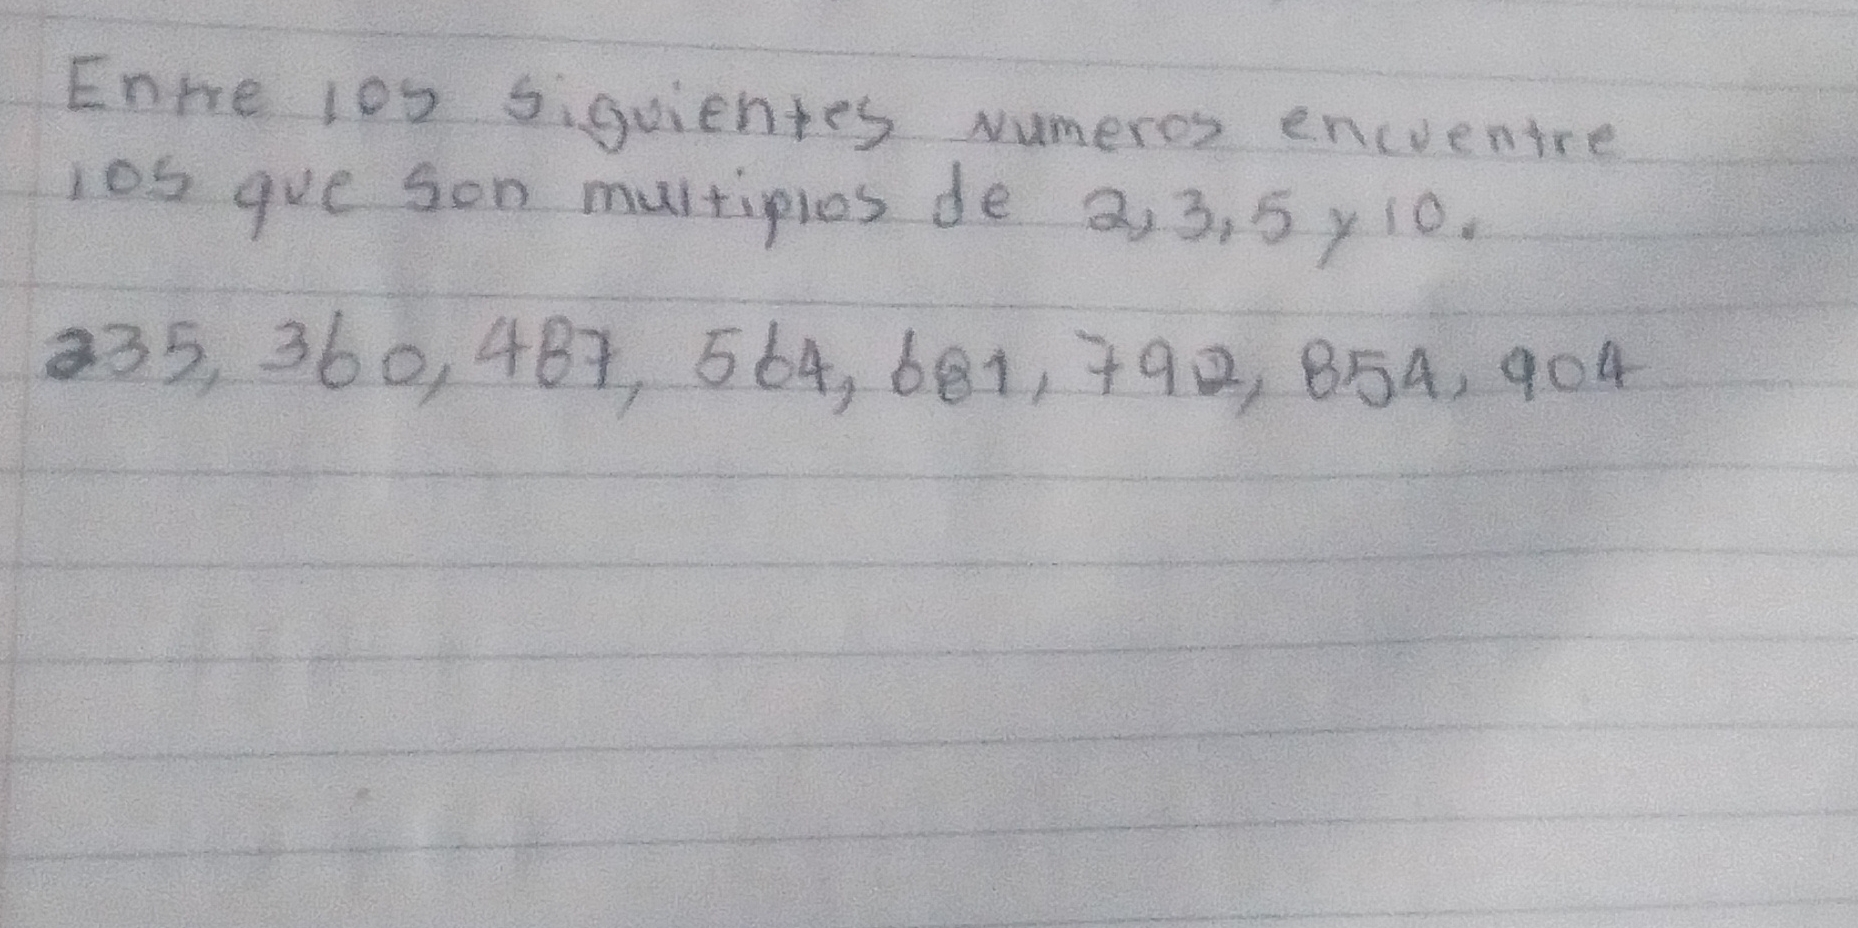 Entre los siguientes Numeros encuentre
los que son multiplos de 2, 3, 5 y 10.
235, 360, 487, 564, 681, 792, 854, 904